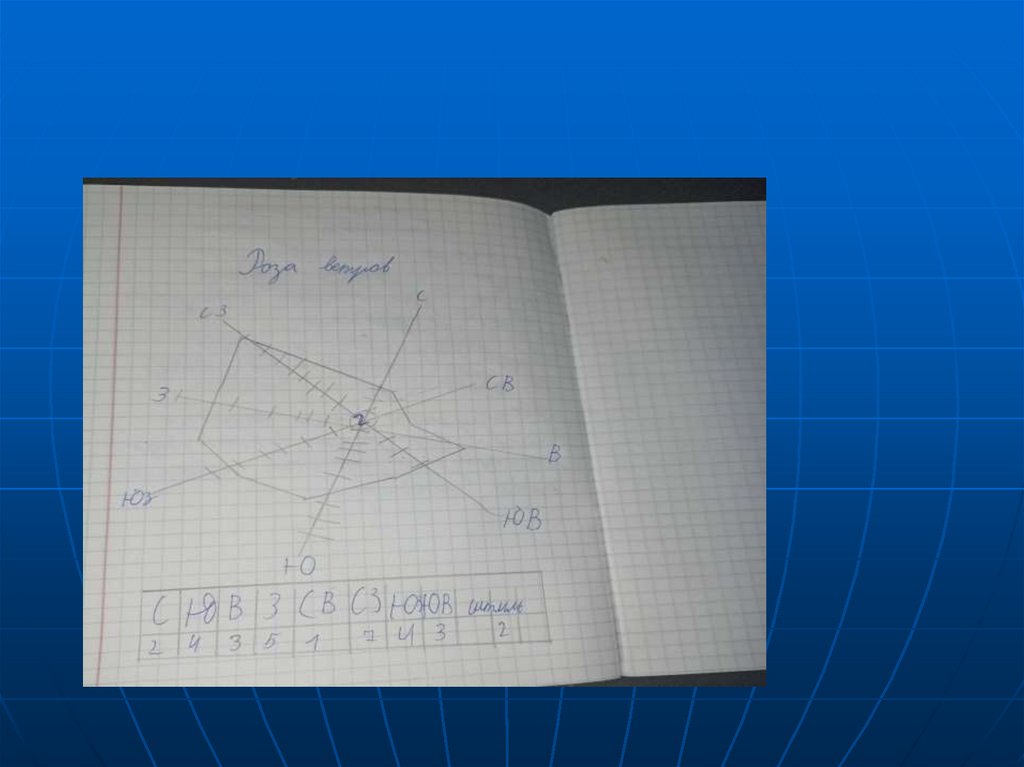 Роза ветров
С
СЗ
СВ
З
2
В
ЮЗ
ЮВ
Ю
С Ю В З СВ СЗ ЮЗ ЮВ штиль
2 4 3 5 1 7 4 3 2